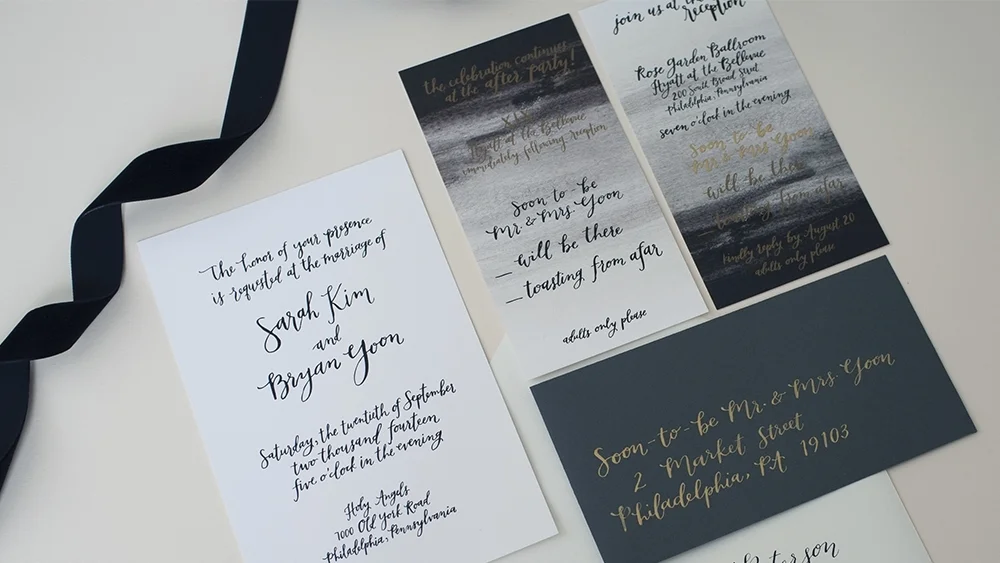 The honor of your presence
is requested at the marriage of
Sarah Kim
and
Bryan Yoon
Saturday, the twentieth of September
two thousand fourteen
five o'clock in the evening
Holy Angels
7000 Old York Road
Philadelphia, Pennsylvania
the celebration continues
at the after party!
Hyatt at the Bellevue
immediately following reception
Soon-to-be
Mr. & Mrs. Yoon
will be there
toasting from afar
adults only please
join us at the
reception
Rose Garden Ballroom
Hyatt at the Bellevue
200 South Broad Street
Philadelphia, Pennsylvania
seven o'clock in the evening
Soon to be
Mr. & Mrs. Yoon
will be there
toasting from afar
kindly reply by August 20
adults only please
Soon-to-be Mr. & Mrs. Yoon
2 Market Street
Philadelphia, PA 19103